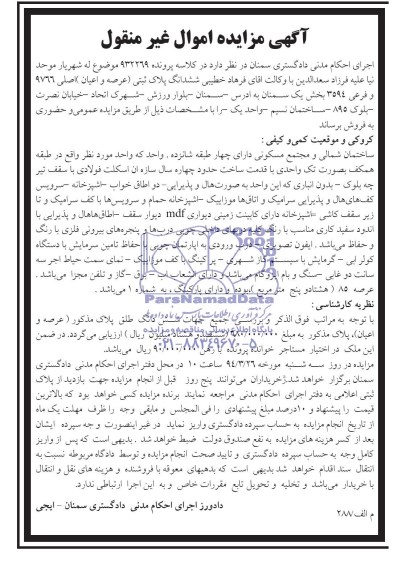 آگهی مزایده اموال غیر منقول
اجرای احکام مدنی دادگستری سمنان در نظر دارد در کلاسه پرونده ۹۳۲۲۶۹ موضوع له شهریار موحد
نیا علیه فرزاد سعدالدین با وکالت اقای فرهاد خطیبی ششدانگ پلاک ثبتی (عرصه و اعیان )اصلی ۹۷۶۶
و فرعی ۳۵۹۴ بخش یک سمنان به ادرس –سمنان –بلوار ورزش –شهرک اتحاد –خیابان نصرت
–بلوک ۸۹۵ –ساختمان نسیم –واحد یک –را با مشخصات ذیل از طریق مزایده عمومی و حضوری
به فروش برساند
کروکی و موقعیت کمی و کیفی :
ساختمان شمالی و مجتمع مسکونی دارای چهار طبقه شانزده . واحد که واحد مورد نظر واقع در طبقه
همکف بصورت تک واحدی با قدمت ساخت حدود چهاره سال سازه ان اسکلت فولادی با سقف تیر
چه بلوک – بدون انباری که این واحد به صورت هال و پذیرایی– دو اطاق خواب –اشپزخانه –سرویس
کف های هال و پذیرایی سرامیک و اتاق ها موزاییک –اشپزخانه حمام و سرویس ها با کف سرامیک و تا
زیر سقف کاشی =اشپزخانه دارای کابینت زمینی دیواری mdf دیوار سقف –اطاق هاهال و پذیرایی با
اندود سفید کاری مناسب با رنگ کلیه درب های داخلی چوبی درب ها و پنجره های بیرونی فلزی با رنگ
و حفاظ می باشد . ایفون تصویری – درب ورودی به اپارتمان چوبی با حفاظ تامین سرمایش با دستگاه
کولر ابی – گرمایش با سیستم گاز شهری – پارکینگ با کف موزائیک – نمای سمت حیاط اجر سه
سانت دو غابی –سنگ و بام ایزوگام می باشد و دارای انشعاب اب – برق –گاز و تلفن مجزا می باشد .
عرصه ۸۵ ( هشتادو پنج متر مربع )بوده و دارای پارکینگ ، به شماره ۱ می باشد .
نظریه کارشناسی :
با توجه به مراتب فوق الذکر و بررسی جمیع جهات شش دانگ طلق پلاک مذکور ( عرصه و
اعیان)، پلاک مذکور به مبلغ ریال ) ارزیابی می گردد. در ضمن
این ملک در اختیار مستاجر خوانده پرونده با رهن ۹۰/۰۰۰/۰۰۰ ریال می باشد.
مزایده در روز سه شنبه مورخه ۹۴/۳/۲۶ ساعت ۱۰ در محل دفتر اجرای احکام مدنی دادگستری
سمنان برگزار خواهد شد.خریداران می توانند پنج روز قبل از انجام مزایده جهت بازدید از پلاک
ثبتی اعلامی به دفتر اجرای احکام مدنی مراجعه نمایند برنده مزایده کسی خواهد بود که بالاترین
قیمت را پیشنهاد و ۱۰درصد مبلغ پیشنهادی را فی المجلس و مابقی وجه را ظرف مهلت یک ماه
از تاریخ انجام مزایده به حساب سپرده دادگستری واریز نماید در غیر اینصورت وجه سپرده ایشان
بعد از کسر هزینه های مزایده به نفع صندوق دولت ضبط خواهد شد . بدیهی است که پس از واریز
کامل وجه به حساب سپرده دادگستری و تایید صحت انجام مزایده و توسط دادگاه مربوطه نسبت به
انتقال سند اقدام خواهد شد بدیهی است که بدهیهای معوقه با فروشنده و هزینه های نقل و انتقال
با خریدار می باشد و تخلیه و تحویل تابع مقررات خاص و به این اجرا ارتباطی ندارد.
دادورز اجرای احکام مدنی دادگستری سمنان – ایجی
م الف/۲۸۷
ParsNamadData
پایگاه اطلاع رسانی مناقصه و مزایده
۰۲۱-۸۸۳۴۹۶۷۰-۵